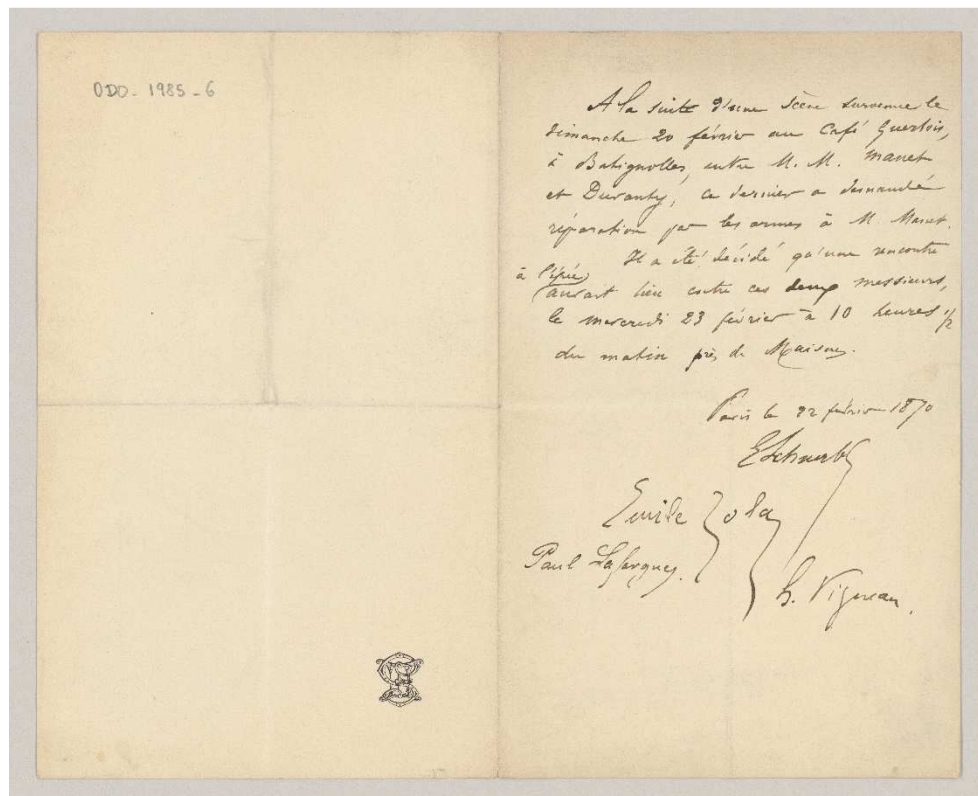 ODO - 1985 - 6
A la suite d'une scène survenue le
dimanche 20 février au Café Guerbois,
à Batignolles, entre M. M. Manet
et Duranty, ce dernier a demandé
réparation par les armes à M. Manet.
Il a été décidé qu'une rencontre
à l'épée
aurait lieu entre ces deux messieurs,
le mercredi 23 février à 10 heures 1/2
du matin près de Maisons.
Paris le 22 février 1870
E Schnerb
Emile Zola
Paul Lafargue.
H. Vigneau.